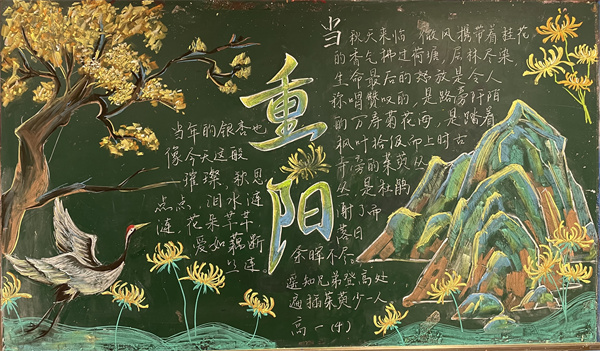 重阳
当秋天来临 微风携带着桂花
的香气拂过荷塘,层林尽染,
生命最后的怒放是令人
称唱赞叹的,是路旁阡陌
的万寿菊花雨,是踏着
枫叶拾级而上时古
寺旁的茱萸丛
丛,是杜鹃
谢了而
落日
余晖不尽。
当年的银杏也
像今天这般
璀璨,秋思
点点,泪水涟
涟,花朵芊芊
爱如藕断
丝连
遥知兄弟登高处
遍插茱萸少一人
高一(4)